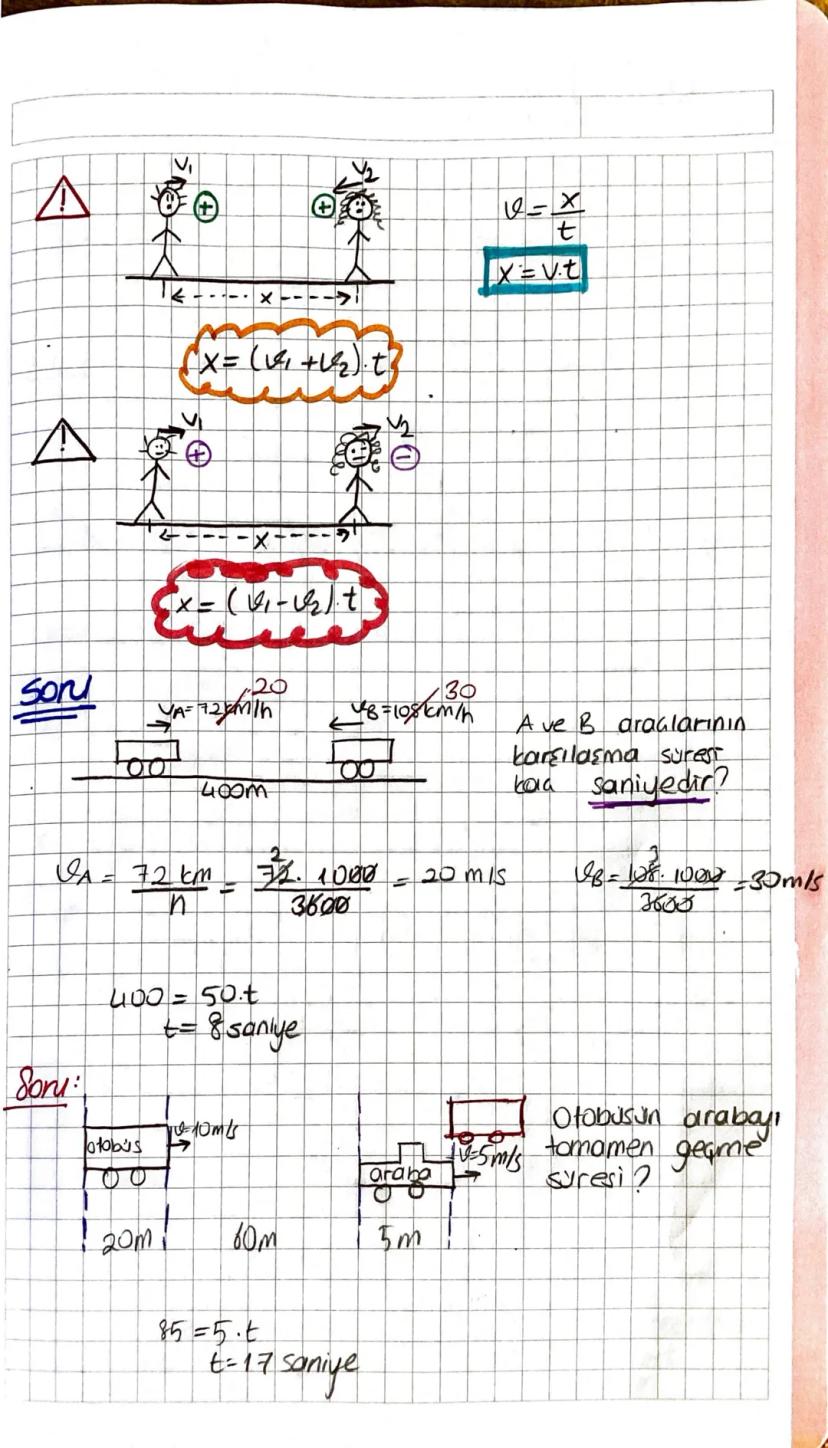 V1 V2
+ +
v = x/t
x = v.t
x
x = (v1 + v2).t
V1 V2
+ -
x
x = (v1 - v2).t
Soru
VA = 72 km/h 20 VB = 108 km/h 30
400m
A ve B araçlarının
karşılaşma süresi
kaç saniyedir?
VA = 72 km/h = 72.1000/3600 = 20 m/s
2
VB = 108.1000/3600 = 30 m/s
3
400 = 50.t
t = 8 saniye
Soru:
otobüs v=10m/s
araba v=5m/s
20m 60m 5m
Otobüsün arabayı
tamamen geçme
süresi?
85 = 5.t
t = 17 saniye